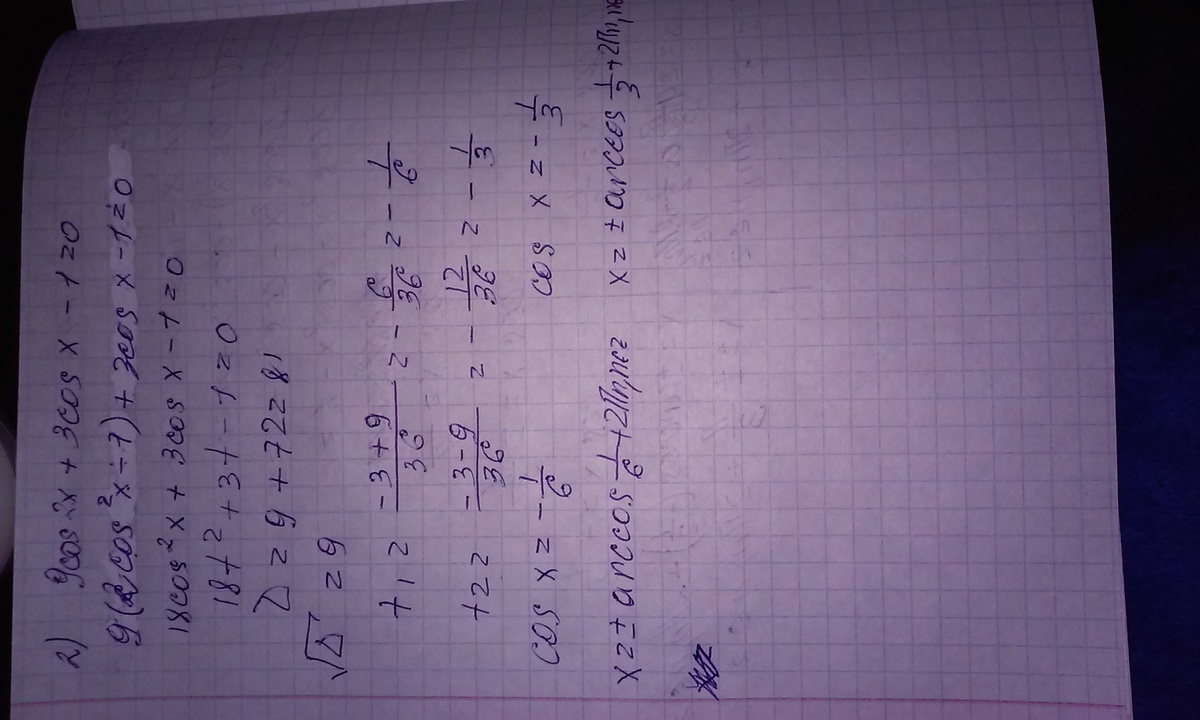 2) 9cos 2x + 3cos x - 1 = 0
9(2cos²x - 1) + 3cos x - 1 = 0
18cos²x + 3cos x - 1 = 0
18t² + 3t - 1 = 0
D = 9 + 72 = 81
√D = 9
t1 = (-3+9)/36 = -6/36 = -1/6
t2 = (-3-9)/36 = -12/36 = -1/3
cos x = -1/6   cos x = -1/3
x = ± arccos 1/6 + 2Πn, n∈z   x = ± arccos 1/3 + 2Πn, n∈